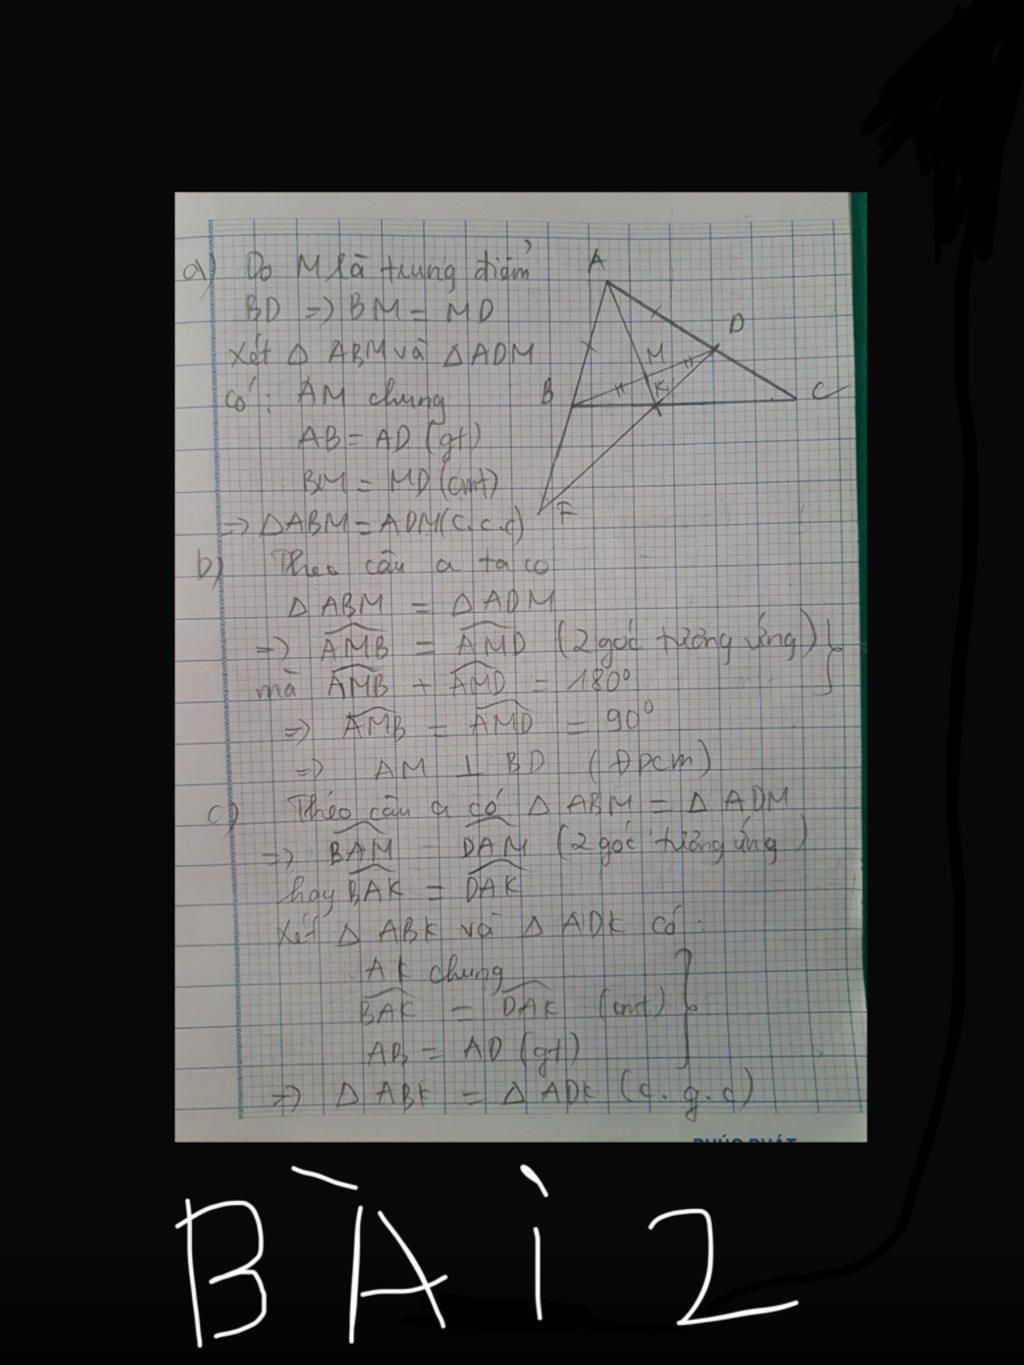 A
D
M
B
K
C
F
a) Do M là trung điểm
BD => BM = MD
Xét Δ ABM và Δ ADM
Có: AM chung
AB = AD (gt)
BM = MD (cmt)
=> Δ ABM = ADM (c.c.c)
b) Theo câu a ta co
Δ ABM = Δ ADM
=> AMB = AMD (2 góc tương ứng)
mà AMB + AMD = 180°
=> AMB = AMD = 90°
=> AM ⊥ BD (Đpcm)
c) Theo câu a có Δ ABM = Δ ADM
=> BAM = DAM (2 góc tương ứng)
hay BAK = DAK
Xét Δ ABK và Δ ADK có:
AK chung
BAK = DAK (cmt)
AB = AD (gt)
=> Δ ABK = Δ ADK (c.g.c)
BÀI 2